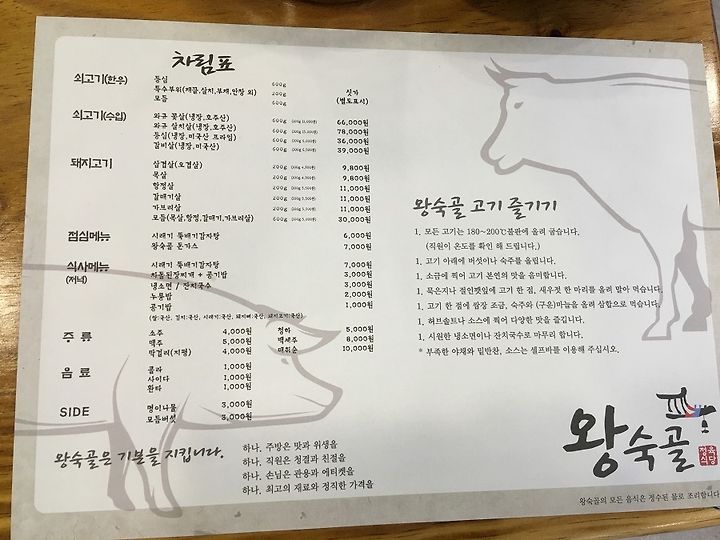 차림표
쇠고기(한우) 등심 600g 싯가
특수부위(채끝,살치,부채,안창 외) 200g (별도표시)
모듬 600g
쇠고기(수입) 와규 꽃살(냉장,호주산) 600g 66,000원
와규 살치살(냉장,호주산) 600g 78,000원
등심(냉장,미국산 프라임) 600g 36,000원
갈비살(냉장,미국산) 600g 39,000원
돼지고기 삼겹살(오겹살) 200g 9,800원
목살 200g 9,800원
항정살 200g 11,000원
갈매기살 200g 11,000원
가브리살 200g 11,000원
모듬(목살,항정,갈매기,가브리살) 600g 30,000원
점심메뉴 시래기 뚝배기감자탕 6,000원
왕숙골 돈가스 7,000원
식사메뉴 (저녁) 시래기 뚝배기감자탕 7,000원
차돌된장찌개 + 공기밥 3,000원
냉소면 / 잔치국수 3,000원
누룽밥 2,000원
공기밥 1,000원
(쌀:국산, 김치:국산, 시래기:국산, 돼지뼈:국산, 돼지고기:국산)
주 류 소주 4,000원 청하 5,000원
맥주 5,000원 백세주 8,000원
막걸리(지평) 4,000원 매취순 10,000원
음 료 콜라 1,000원
사이다 1,000원
환타 1,000원
SIDE 명이나물 3,000원
모듬버섯 3,000원
왕숙골은 기본을 지킵니다.
하나. 주방은 맛과 위생을
하나. 직원은 청결과 친절을
하나. 손님은 관용과 에티켓을
하나. 최고의 재료와 정직한 가격을
왕숙골 고기 즐기기
1. 모든 고기는 180~200℃불판에 올려 굽습니다.
(직원이 온도를 확인 해 드립니다.)
1. 고기 아래에 버섯이나 숙주를 올립니다.
1. 소금에 찍어 고기 본연의 맛을 음미합니다.
1. 묵은지나 절인깻잎에 고기 한 점, 새우젓 한 마리를 올려 말아 먹습니다.
1. 고기 한 점에 쌈장 조금, 숙주와 (구운)마늘을 올려 삼합으로 먹습니다.
1. 허브솔트나 소스에 찍어 다양한 맛을 즐깁니다.
1. 시원한 냉소면이나 잔치국수로 마무리 합니다.
* 부족한 야채와 밑반찬, 소스는 셀프바를 이용해 주십시오.
왕숙골
정육식당
왕숙골의 모든 음식은 정수된 물로 조리합니다